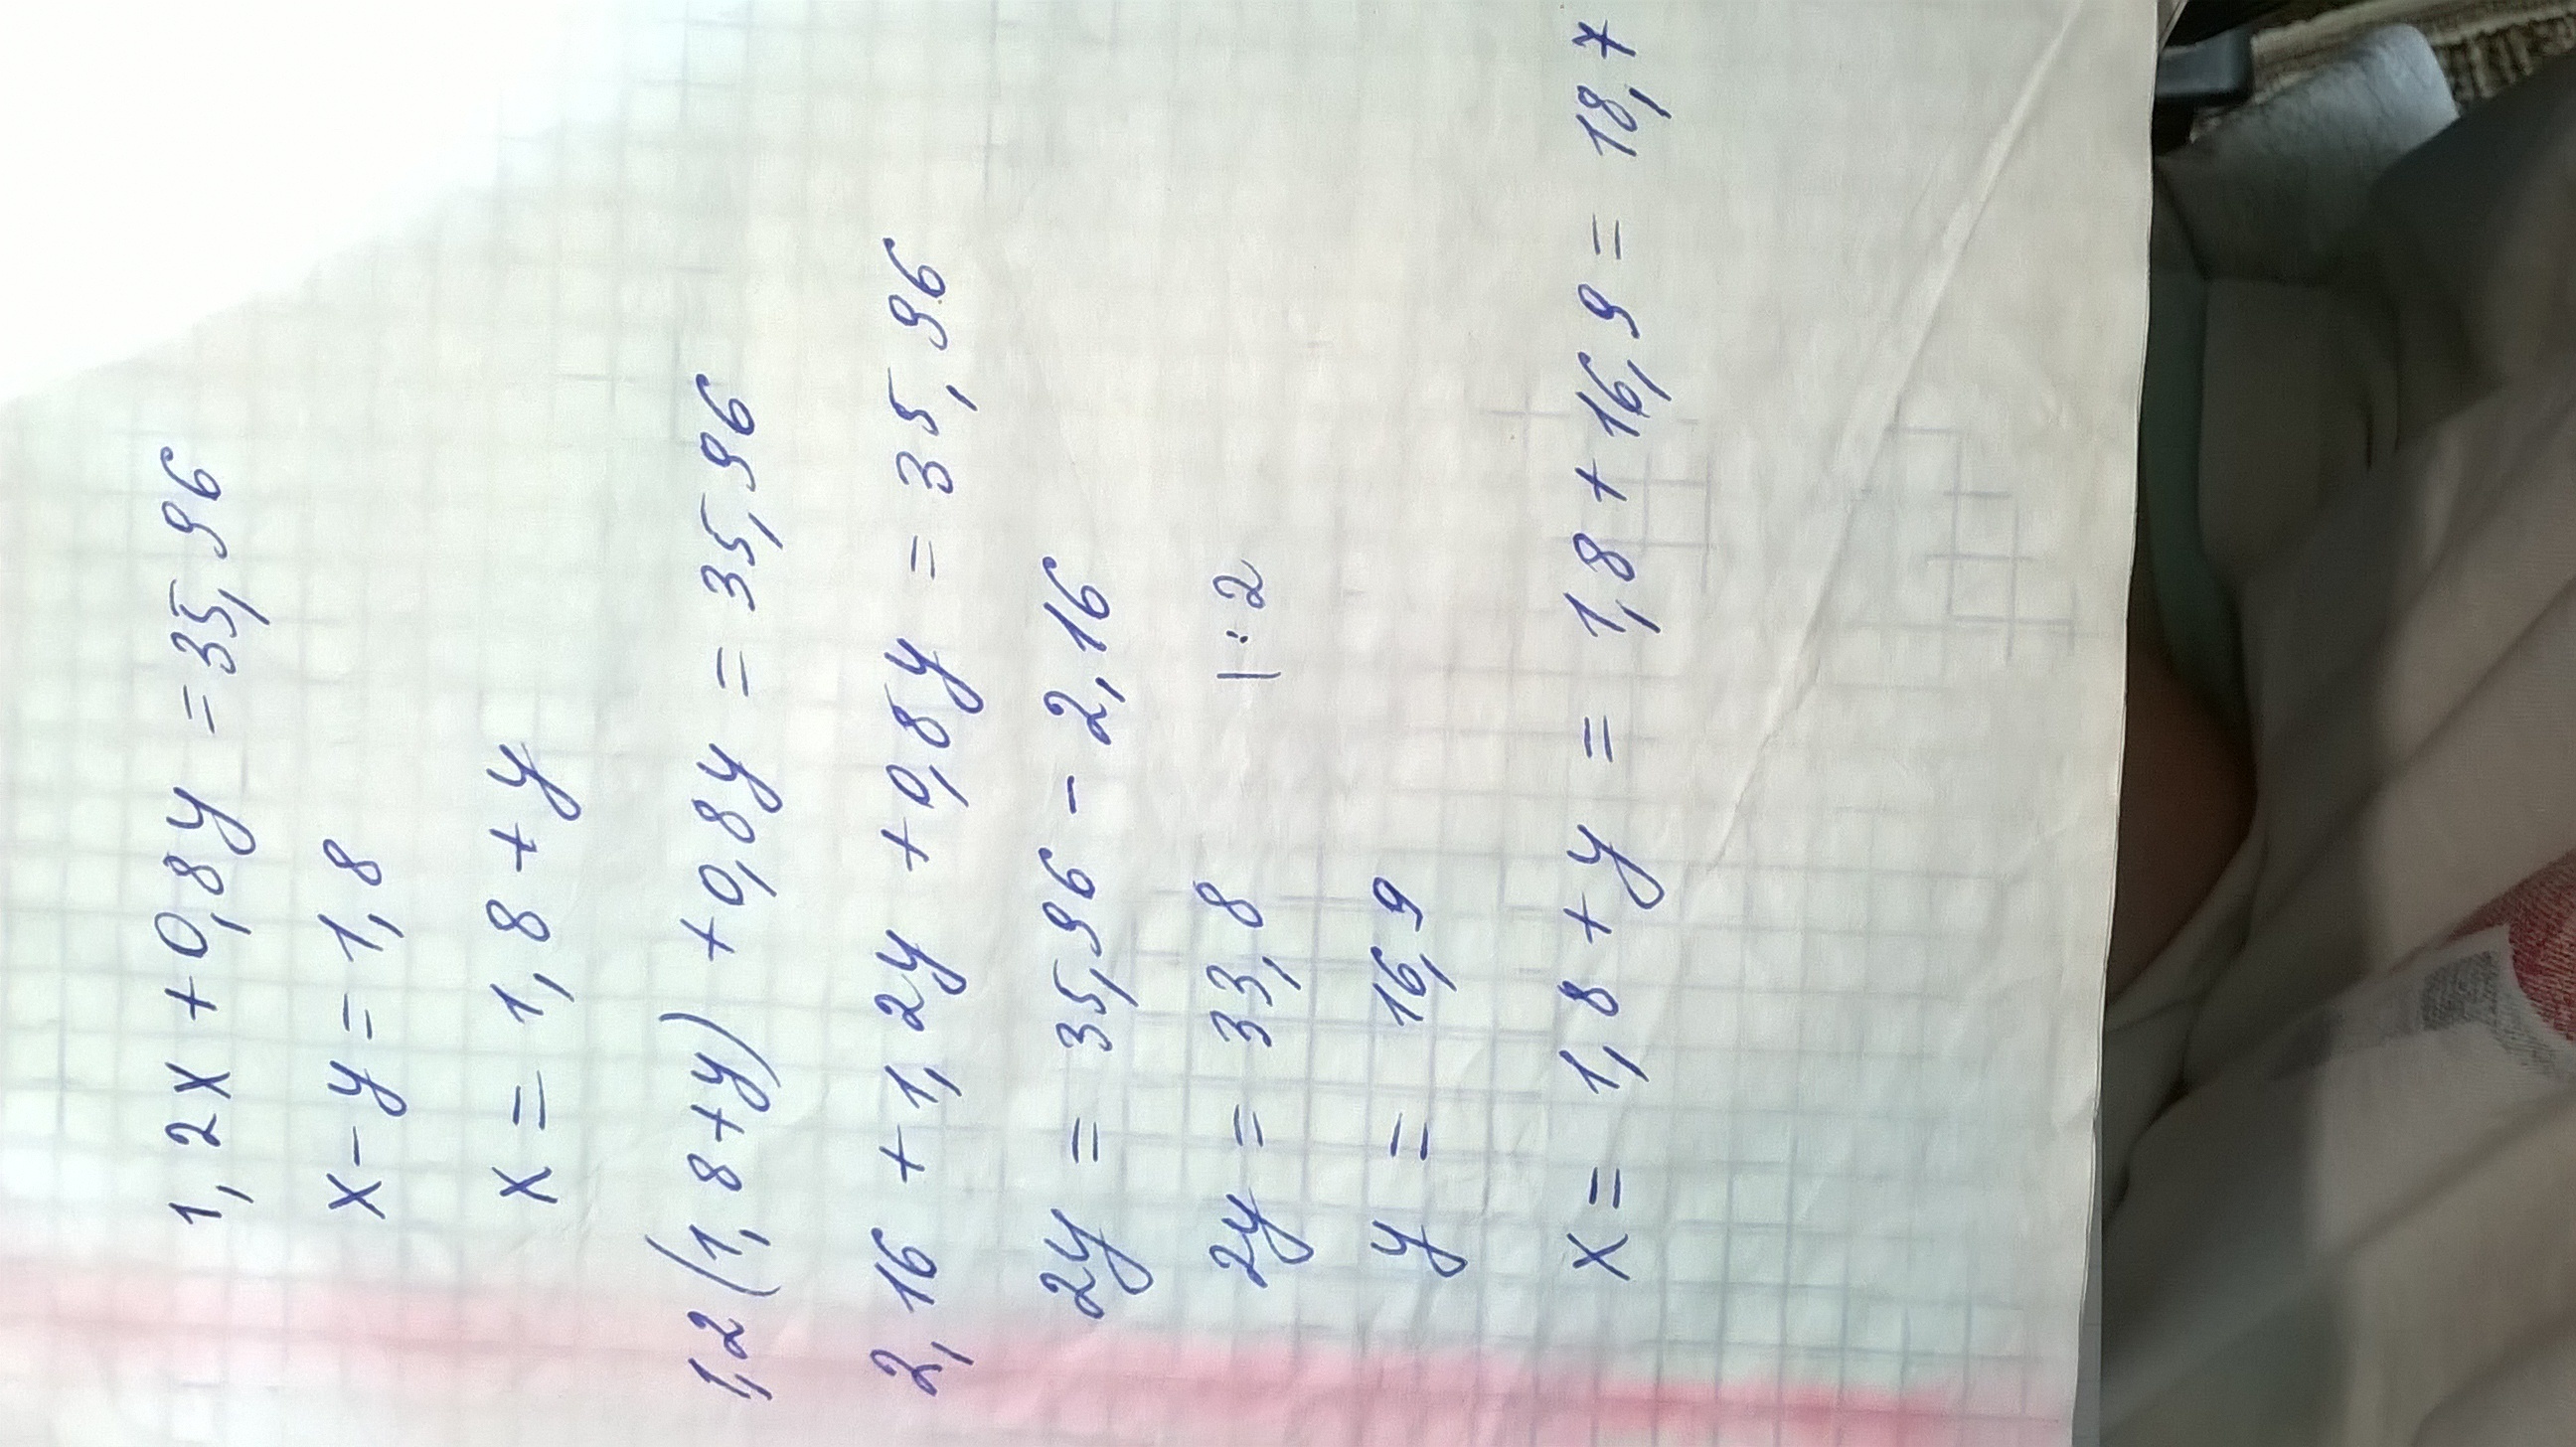 1,2x + 0,8y = 35,96
x - y = 1,8
x = 1,8 + y
1,2(1,8+y) + 0,8y = 35,96
2,16 + 1,2y + 0,8y = 35,96
2y = 35,96 - 2,16
2y = 33,8 |:2
y = 16,9
x = 1,8 + y = 1,8 + 16,9 = 18,7